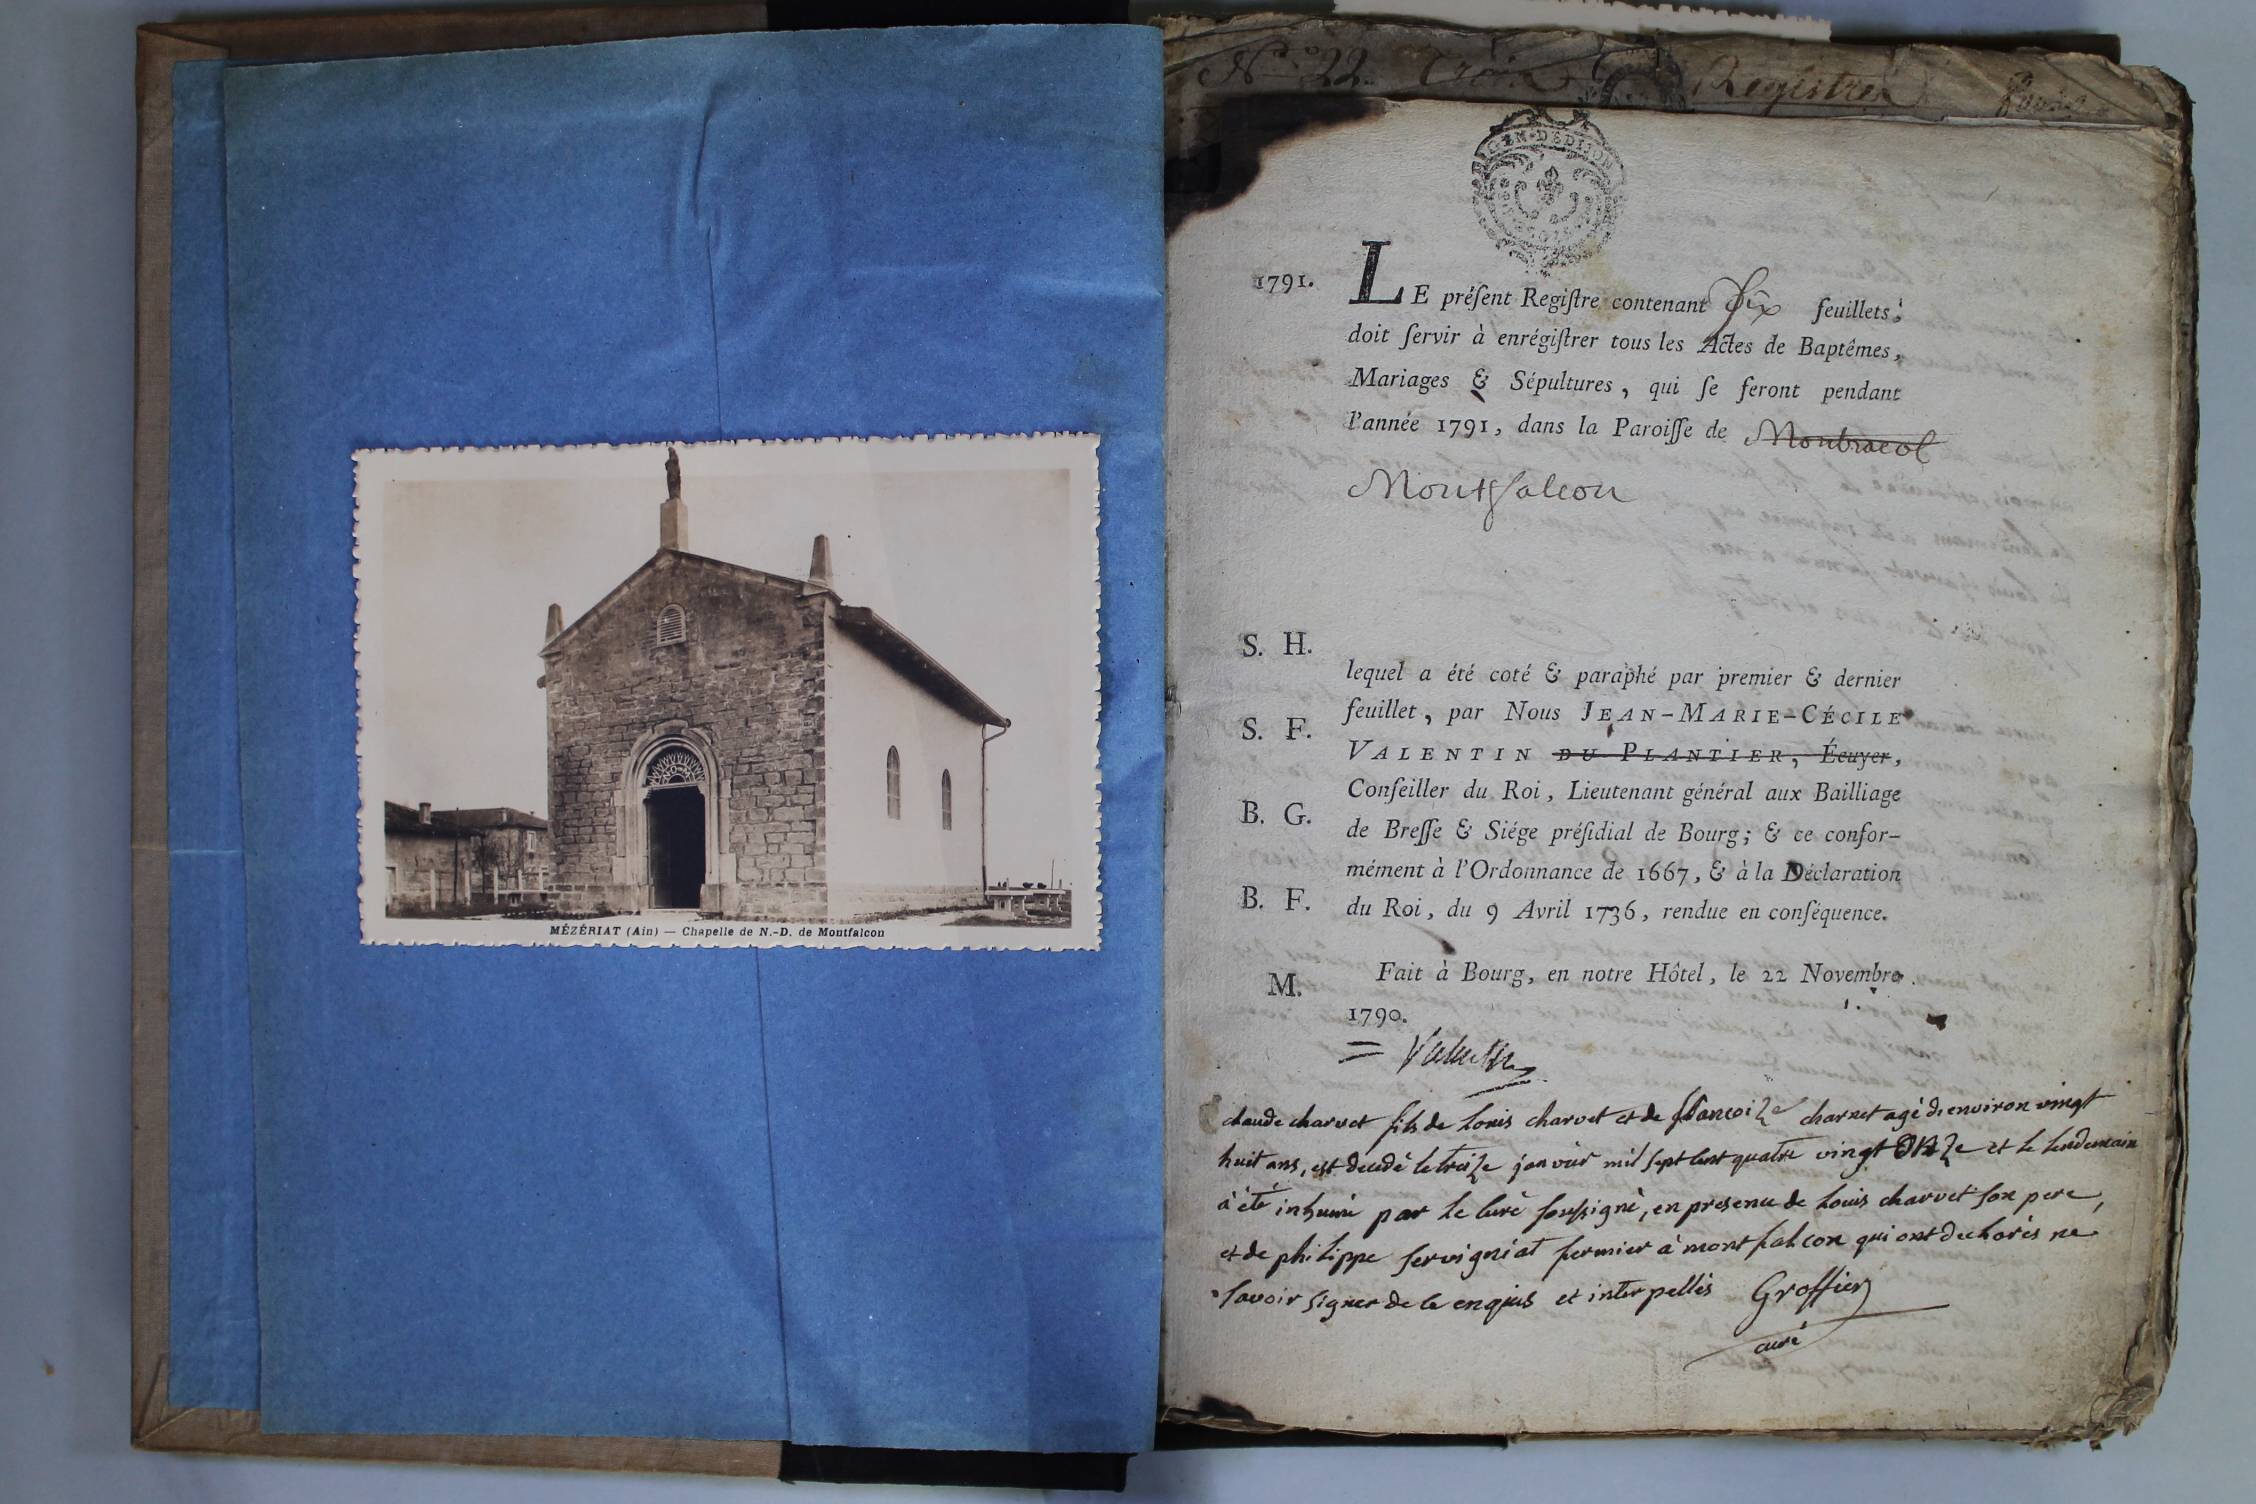 MÉZÉRIAT (Ain) — Chapelle de N.-D. de Montfalcon
N.° 22 Registres
GEN·DE DIJON
1791.
LE préſent Regiſtre contenant six feuillets,
doit ſervir à enrégiſtrer tous les Actes de Baptêmes,
Mariages & Sépultures, qui ſe feront pendant
l'année 1791, dans la Paroiſſe de Monbracol
Montfalcon
S. H.
lequel a été coté & paraphé par premier & dernier
S. F.
feuillet, par Nous JEAN-MARIE-CÉCILE
VALENTIN DU PLANTIER, Écuyer,
B. G.
Conſeiller du Roi, Lieutenant général aux Bailliage
de Breſſe & Siége préſidial de Bourg; & ce confor-
mément à l'Ordonnance de 1667, & à la Déclaration
B. F.
du Roi, du 9 Avril 1736, rendue en conſéquence.
M.
Fait à Bourg, en notre Hôtel, le 22 Novembre
1790.
= Valentin
claude charvet fils de Louis charvet et de francoize charvet agè d'environ vingt
huit ans, est decedè le treize janvier mil sept cent quatre vingt onze et le lendemain
à èté inhumé par le curé soussignè, en presence de Louis charvet son pere,
et de philippe servigniat fermier à montfalcon qui ont declarès ne
savoir signer de ce enquis et interpellès Groffier
curé